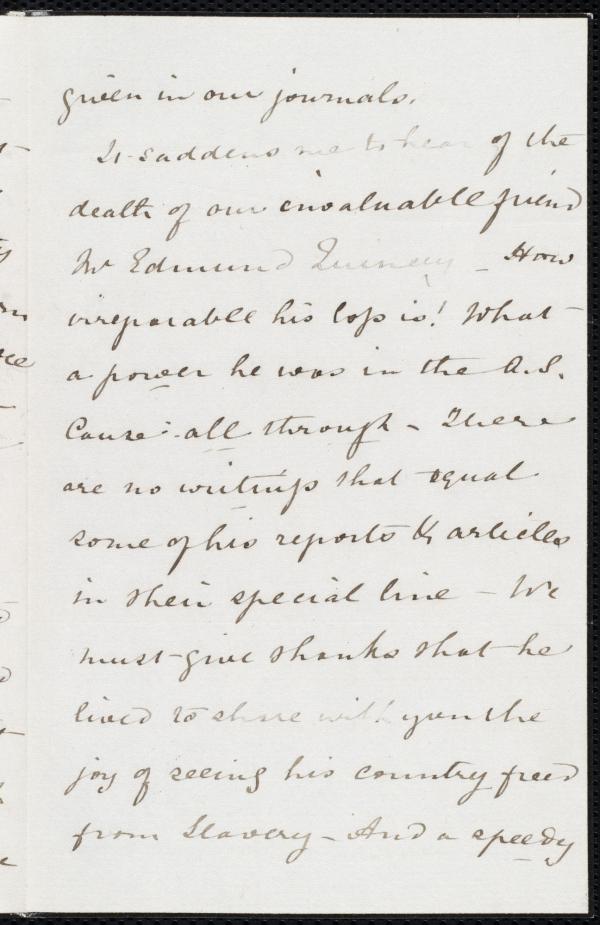 given in our journals.
It saddens me to hear of the
death of our invaluable friend
Mr Edmund Quincy – How
irreparable his loss is! What
a power he was in the A.S.
Cause all through – There
are no writings that equal
some of his reports & articles
in their special line – We
must give thanks that he
lived to share with you the
joy of seeing his country freed
from Slavery – And a speedy